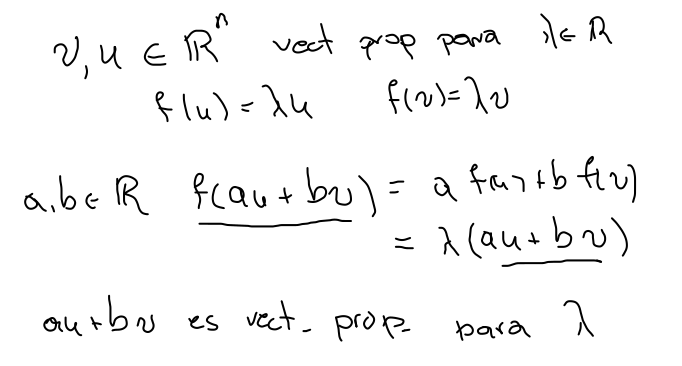 v, u ∈ ℝⁿ vect prop para λ ∈ ℝ
f(u) = λu f(v) = λv
a, b ∈ ℝ f(au + bv) = a f(u) + b f(v)
= λ(au + bv)
au + bv es vect. prop. para λ